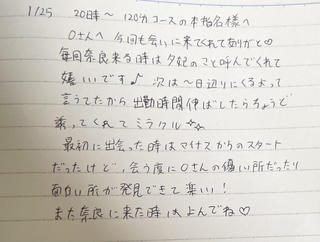 1/25 20時〜 120分コースの本指名様へ
Oさんへ 今回も会いに来てくれてありがと♡
毎回奈良来る時は夕妃のこと呼んでくれて
嬉しいです♪ 次は〜日辺りにくるよって
言うてたから出勤時間伸ばしたらちょうど
乗ってくれてミラクル☆☆
最初に出会った時はマイナスからのスタート
だったけど、会う度にOさんの優い所だったり
面白い所が発見できて楽い!
また奈良に来た時はよんでね♡